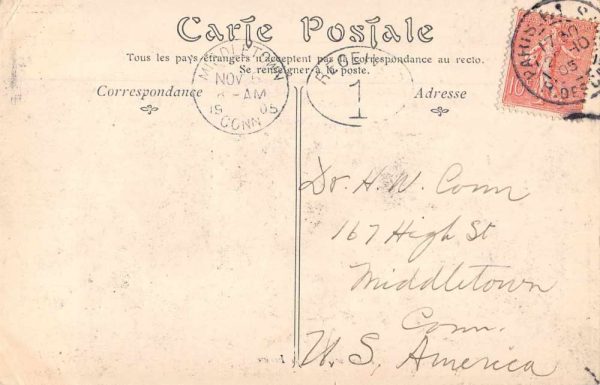 Carte Postale
Tous les pays étrangers n'acceptent pas la correspondance au recto.
Se renseigner à la poste.
Correspondance
Adresse
MIDDLETOWN
NOV
6-AM
1905
CONN.
REC'D
1
PARIS
17
10
05
10
Dr. H. W. Conn
167 High St
Middletown
Conn.
U. S. America